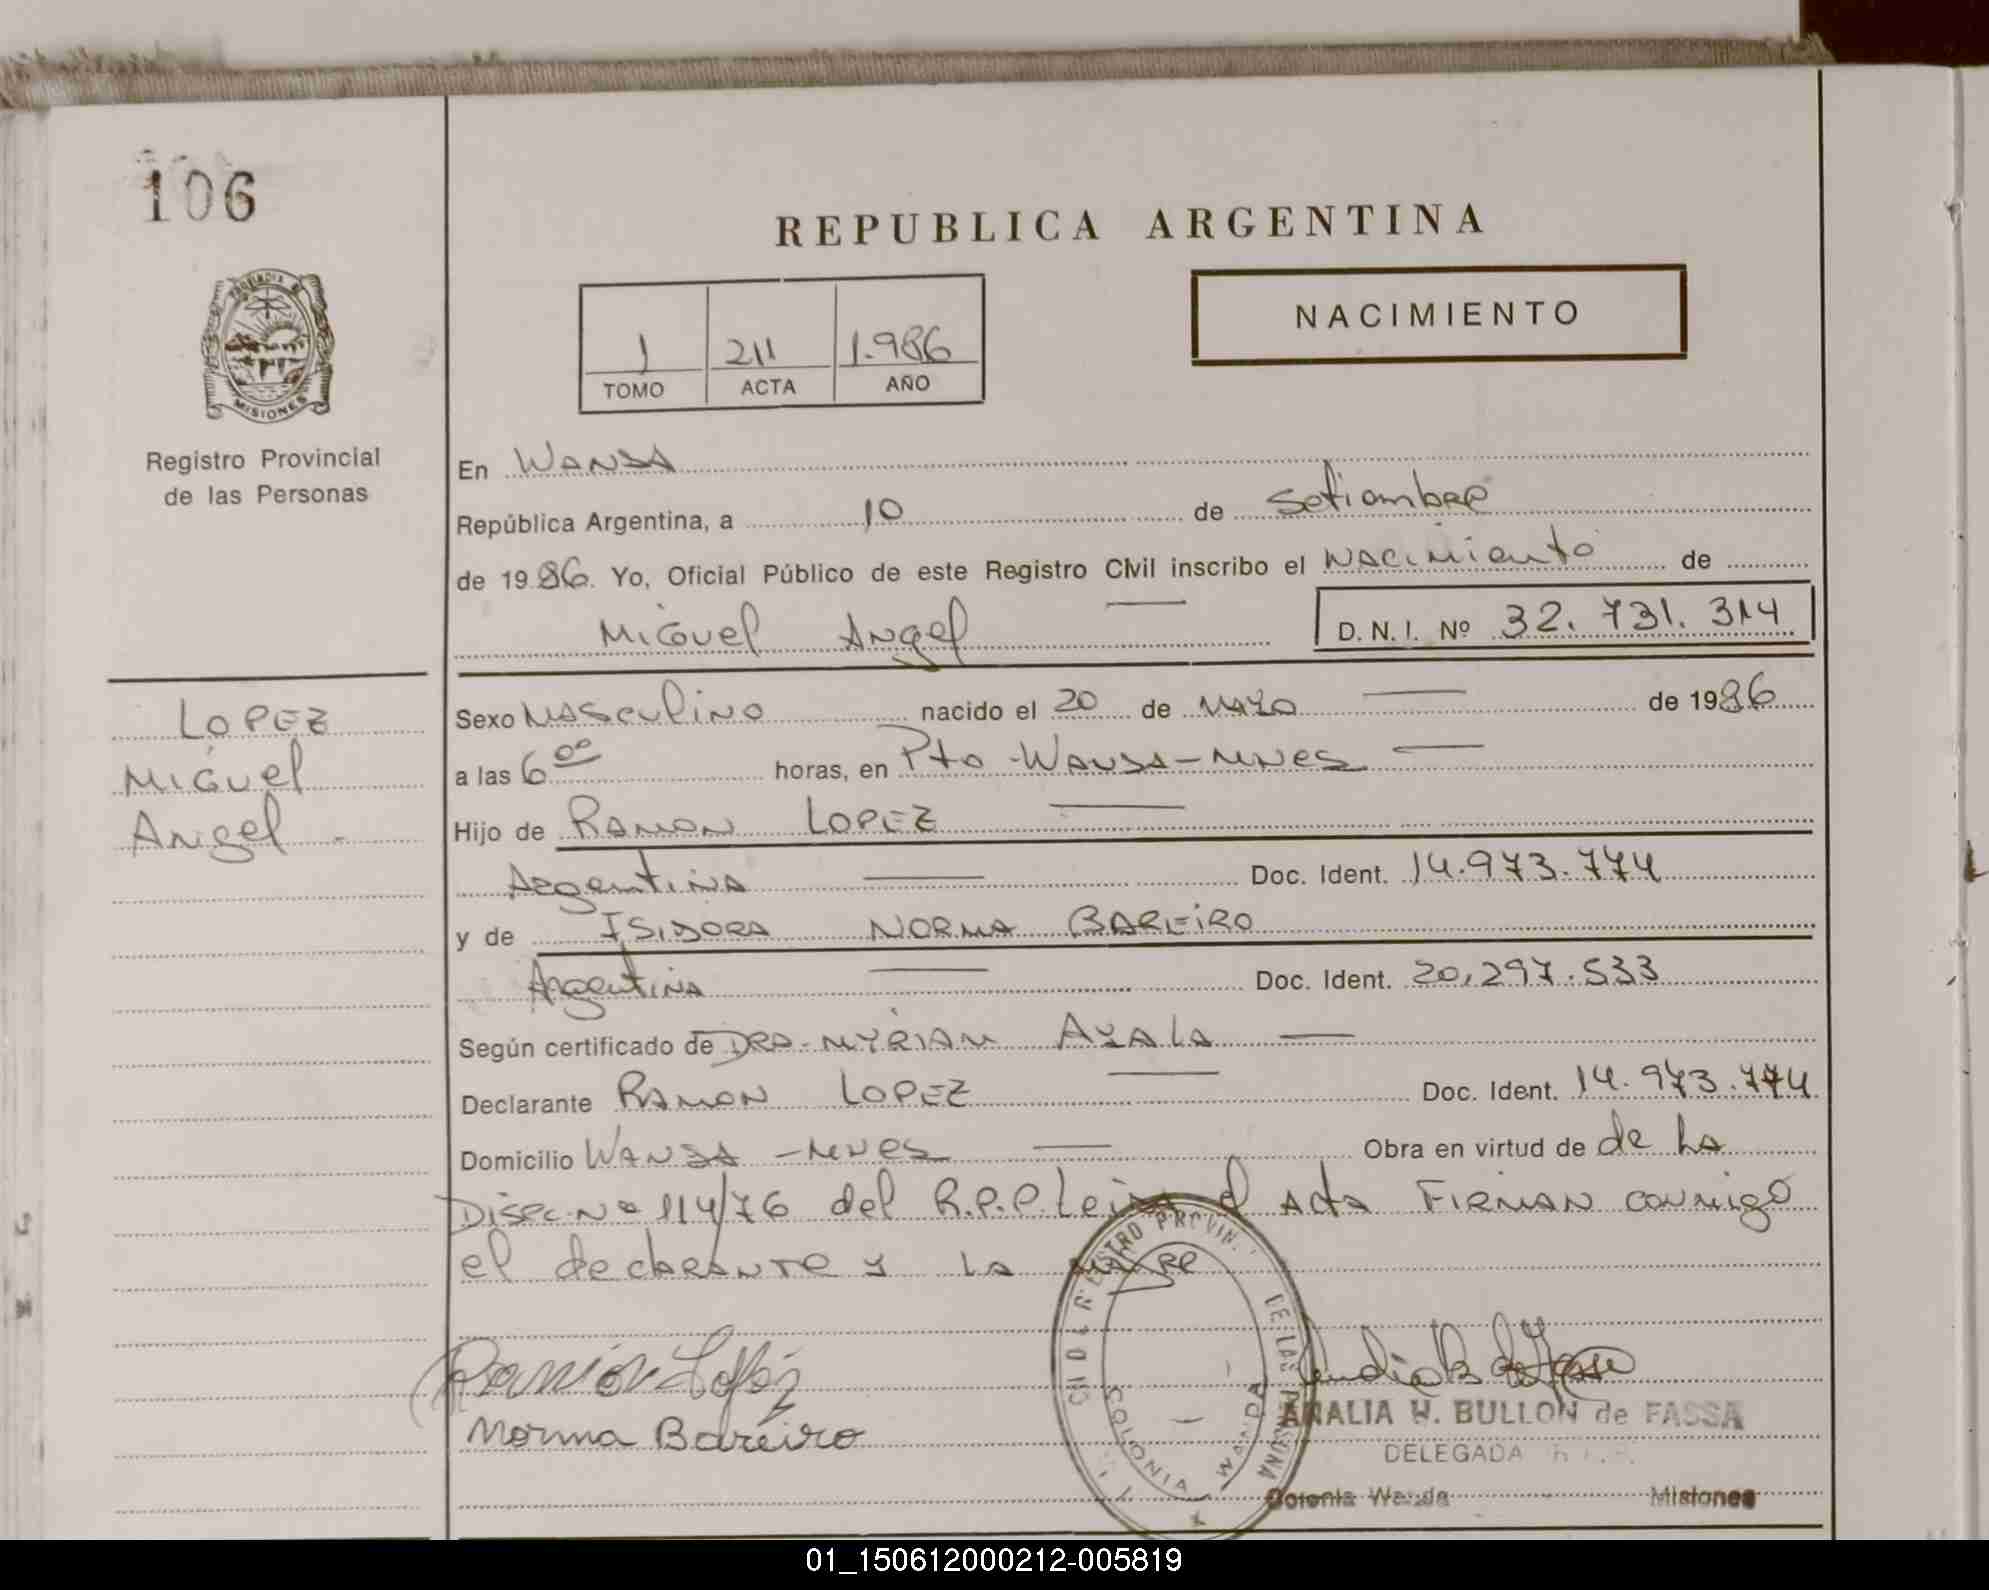 106
REPUBLICA ARGENTINA
NACIMIENTO
1 211 1.986
TOMO ACTA AÑO
MISIONES
Registro Provincial
de las Personas
En WANDA
República Argentina, a 10 de Setiembre
de 1986. Yo, Oficial Público de este Registro Civil inscribo el NACIMIENTO de
MIGUEL ANGEL D.N.I. Nº 32.731.314
LOPEZ
MIGUEL
ANGEL
Sexo MASCULINO nacido el 20 de MAYO de 1986
a las 6 00 horas, en Pto-WANDA-MNES
Hijo de RAMON LOPEZ
ARGENTINA Doc. Ident. 14.973.774
y de ISIDORA NORMA BAREIRO
ARGENTINA Doc. Ident. 20.297.533
Según certificado de DRA-MYRIAM AYALA
Declarante RAMON LOPEZ Doc. Ident. 14.973.774
Domicilio WANDA-MNES Obra en virtud de de la
Disp.Nº 114/76 del R.P.P. Leida el Acta FIRMAN conmigo
el declarante y la madre
Ramón López
Norma Bareiro
REGISTRO PROVIN. DE LAS PERSONAS
COLONIA WANDA
ANALIA W. BULLON de FASSA
DELEGADA
Colonia Wanda Misiones
01_150612000212-005819